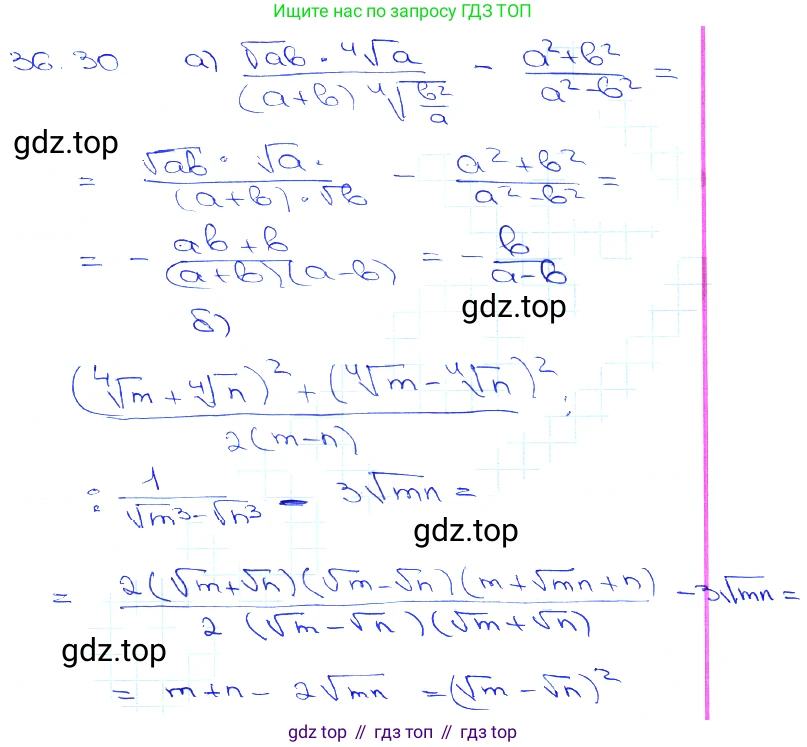 Ищите нас по запросу ГДЗ ТОП
36.30 а) √ab · ⁴√a / (a+b) ⁴√(b²/a) − a²+b² / a²−b² =
gdz.top
= √ab · √a · / (a+b) · √b − a²+b² / a²−b² =
= − ab+b / (a+b)(a−b) = − b / a−b
gdz.top
б)
(⁴√m + ⁴√n)² + (⁴√m − ⁴√n)² / 2(m−n) :
: 1 / √m³−√n³ − 3√mn =
gdz.top
= 2(√m+√n)(√m−√n)(m+√mn+n) / 2(√m−√n)(√m+√n) − 3√mn =
gdz.top
= m+n − 2√mn = (√m − √n)²
gdz top // гдз топ // gdz top